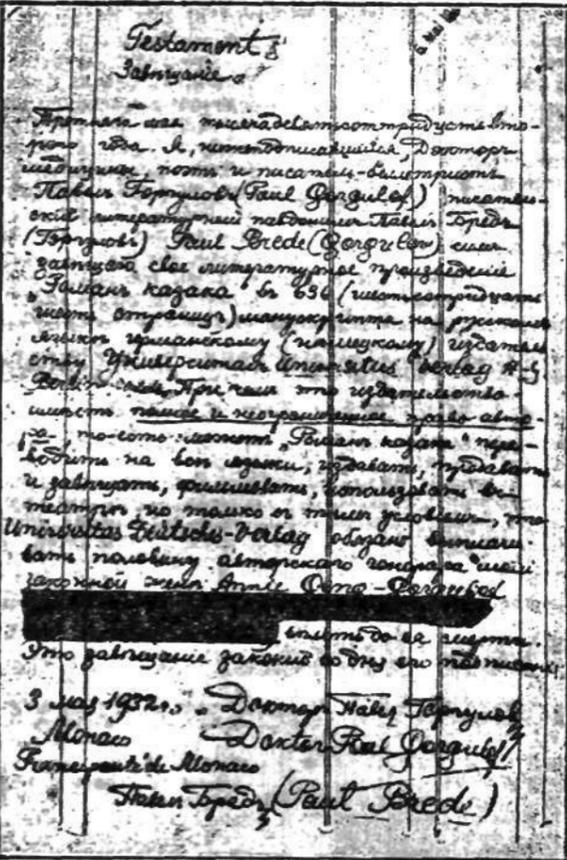 Testament
Завѣщанiе
Третьяго мая тысячадевятьсоттридцать вто-
рого года. Я, нижеподписавшійся, Докторъ
медицины, поэтъ и писатель-беллетристъ
Павелъ Горгуловъ (Paul Gorgulof) писатель-
скій литературный псевдонимъ Павелъ Бредъ
(Горгуловъ) Paul Brede (Gorgulow) симъ
завѣщаю свое литературное произведеніе
„Романъ казака" въ 636 (шестьсоттридцать
шесть страницъ) манускрипта на русскомъ
языкѣ германскому (нѣмецкому) издатель
ству Universitas Verlag A-G
Berlin При чемъ это издательство
имѣетъ полное и неограниченное право авто-
ра то-есть можетъ „Романъ казака" пере-
водить на всѣ языки, издавать, продавать
и завѣщать, фильмовать, использовать въ
театры, но только съ тѣмъ условіемъ, что
Universitas Deutsches-Verlag обязано выплачи-
вать половину авторскаго гонорара моей
законной женѣ Annie
вплоть до ея смерти.
Это завѣщаніе законно со дня его
3 мая 1932 г. Докторъ Павелъ Горгуловъ
Monaco Doktor Paul Gorgulof
Principauté de Monaco
Павелъ Бредъ (Paul Brede)